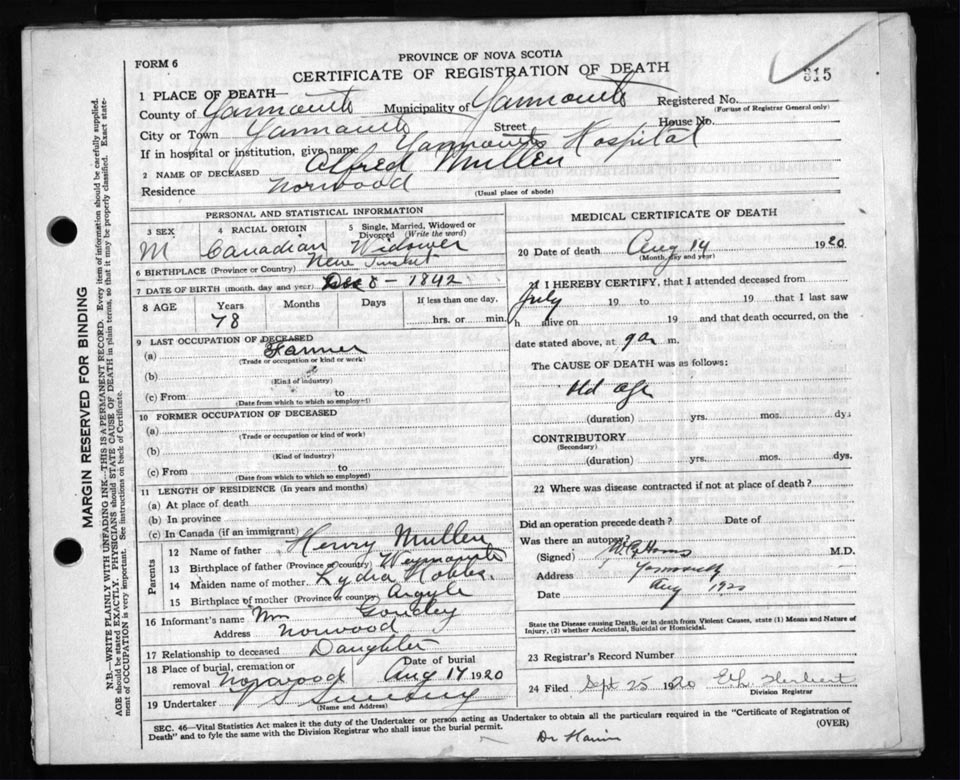 FORM 6
PROVINCE OF NOVA SCOTIA
CERTIFICATE OF REGISTRATION OF DEATH
315
1 PLACE OF DEATH—
County of Yarmouth Municipality of Yarmouth Registered No.
(For use of Registrar General only)
City or Town Yarmouth Street House No.
If in hospital or institution, give name Yarmouth Hospital
2 NAME OF DECEASED Alfred Mullen
Residence Norwood
(Usual place of abode)
PERSONAL AND STATISTICAL INFORMATION
3 SEX 4 RACIAL ORIGIN 5 Single, Married, Widowed or Divorced (Write the word)
M Canadian Widower
6 BIRTHPLACE (Province or Country) New Tusket
7 DATE OF BIRTH (month, day and year) Dec 8 - 1842
8 AGE Years Months Days If less than one day,
78 hrs. or min.
9 LAST OCCUPATION OF DECEASED
(a) Farmer
(Trade or occupation or kind or work)
(b)
(Kind of industry)
(c) From to
(Date from which to which so employed)
10 FORMER OCCUPATION OF DECEASED
(a)
(Trade or occupation or kind of work)
(b)
(Kind of industry)
(c) From to
(Date from which to which so employed)
11 LENGTH OF RESIDENCE (In years and months)
(a) At place of death
(b) In province
(c) In Canada (if an immigrant)
Parents
12 Name of father Henry Mullen
13 Birthplace of father (Province or country) Weymouth
14 Maiden name of mother Lydia Hobbs.
15 Birthplace of mother (Province or country) Argyle
16 Informant's name Mrs Goudey
Address Norwood
17 Relationship to deceased Daughter
18 Place of burial, cremation or removal Norwood Date of burial Aug 17 1920
19 Undertaker Sweeny
(Name and Address)
MEDICAL CERTIFICATE OF DEATH
20 Date of death Aug 14 1920
(Month, day and year)
21 I HEREBY CERTIFY, that I attended deceased from
July 19 to 19 that I last saw
h alive on 19 and that death occurred, on the
date stated above, at 9 a m.
The CAUSE OF DEATH was as follows:
Old age
(duration) yrs. mos. dys
CONTRIBUTORY
(Secondary)
(duration) yrs. mos. dys.
22 Where was disease contracted if not at place of death?
Did an operation precede death? Date of
Was there an autopsy?
(Signed) M.D.
Address Yarmouth
Date Aug 1920
State the Disease causing Death, or in death from Violent Causes, state (1) Means and Nature of
Injury, (2) whether Accidental, Suicidal or Homicidal.
23 Registrar's Record Number
24 Filed Sept 25 1920 Herbert
Division Registrar
SEC. 46—Vital Statistics Act makes it the duty of the Undertaker or person acting as Undertaker to obtain all the particulars required in the "Certificate of Registration of
Death" and to fyle the same with the Division Registrar who shall issue the burial permit.
(OVER)
MARGIN RESERVED FOR BINDING
N.B.—WRITE PLAINLY WITH UNFADING INK—THIS IS A PERMANENT RECORD. Every item of information should be carefully supplied.
AGE should be stated EXACTLY. PHYSICIANS should STATE CAUSE OF DEATH in plain terms, so that it may be properly classified. Exact state-
ment of OCCUPATION is very important. See instructions on back of Certificate.